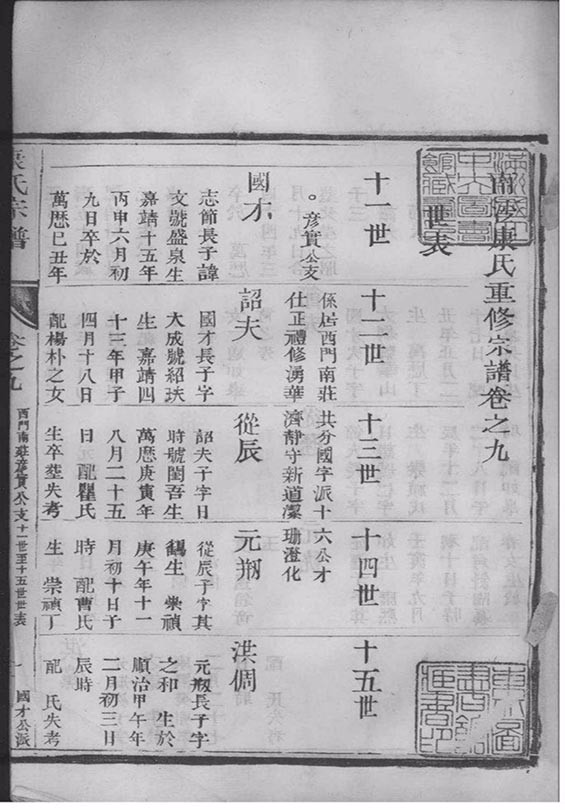 南沙康氏重修宗譜卷之九
世表
十一世
十二世
十三世
十四世
十五世
。彥實公支
係居西門南莊 共分國字派十六公才
仕正禮修湧華 濟靜守新道藻 珊澄化
國才
志節長子諱
文號盛泉生
嘉靖十五年
丙申六月初
九日卒於
萬歷己丑年
詔夫
國才長子字
大成號紹玞
生嘉靖四
十三年甲子
四月十八日
配楊朴之女
從辰
詔夫子字日
時號闇吾生
萬歷庚寅年
八月二十五
日元配瞿氏
生卒塟失考
元瓶
從辰子字其
鶴生 崇禎
庚午年十一
月初十日子
時 配曹氏
生 崇禎丁
洪倜
元瓶長子字
之和 生於
順治甲午年
二月初三日
辰時
配 氏失考
氏宗譜
卷之九
西門南莊彥實公支十一世至十五世世表
一
國才公派